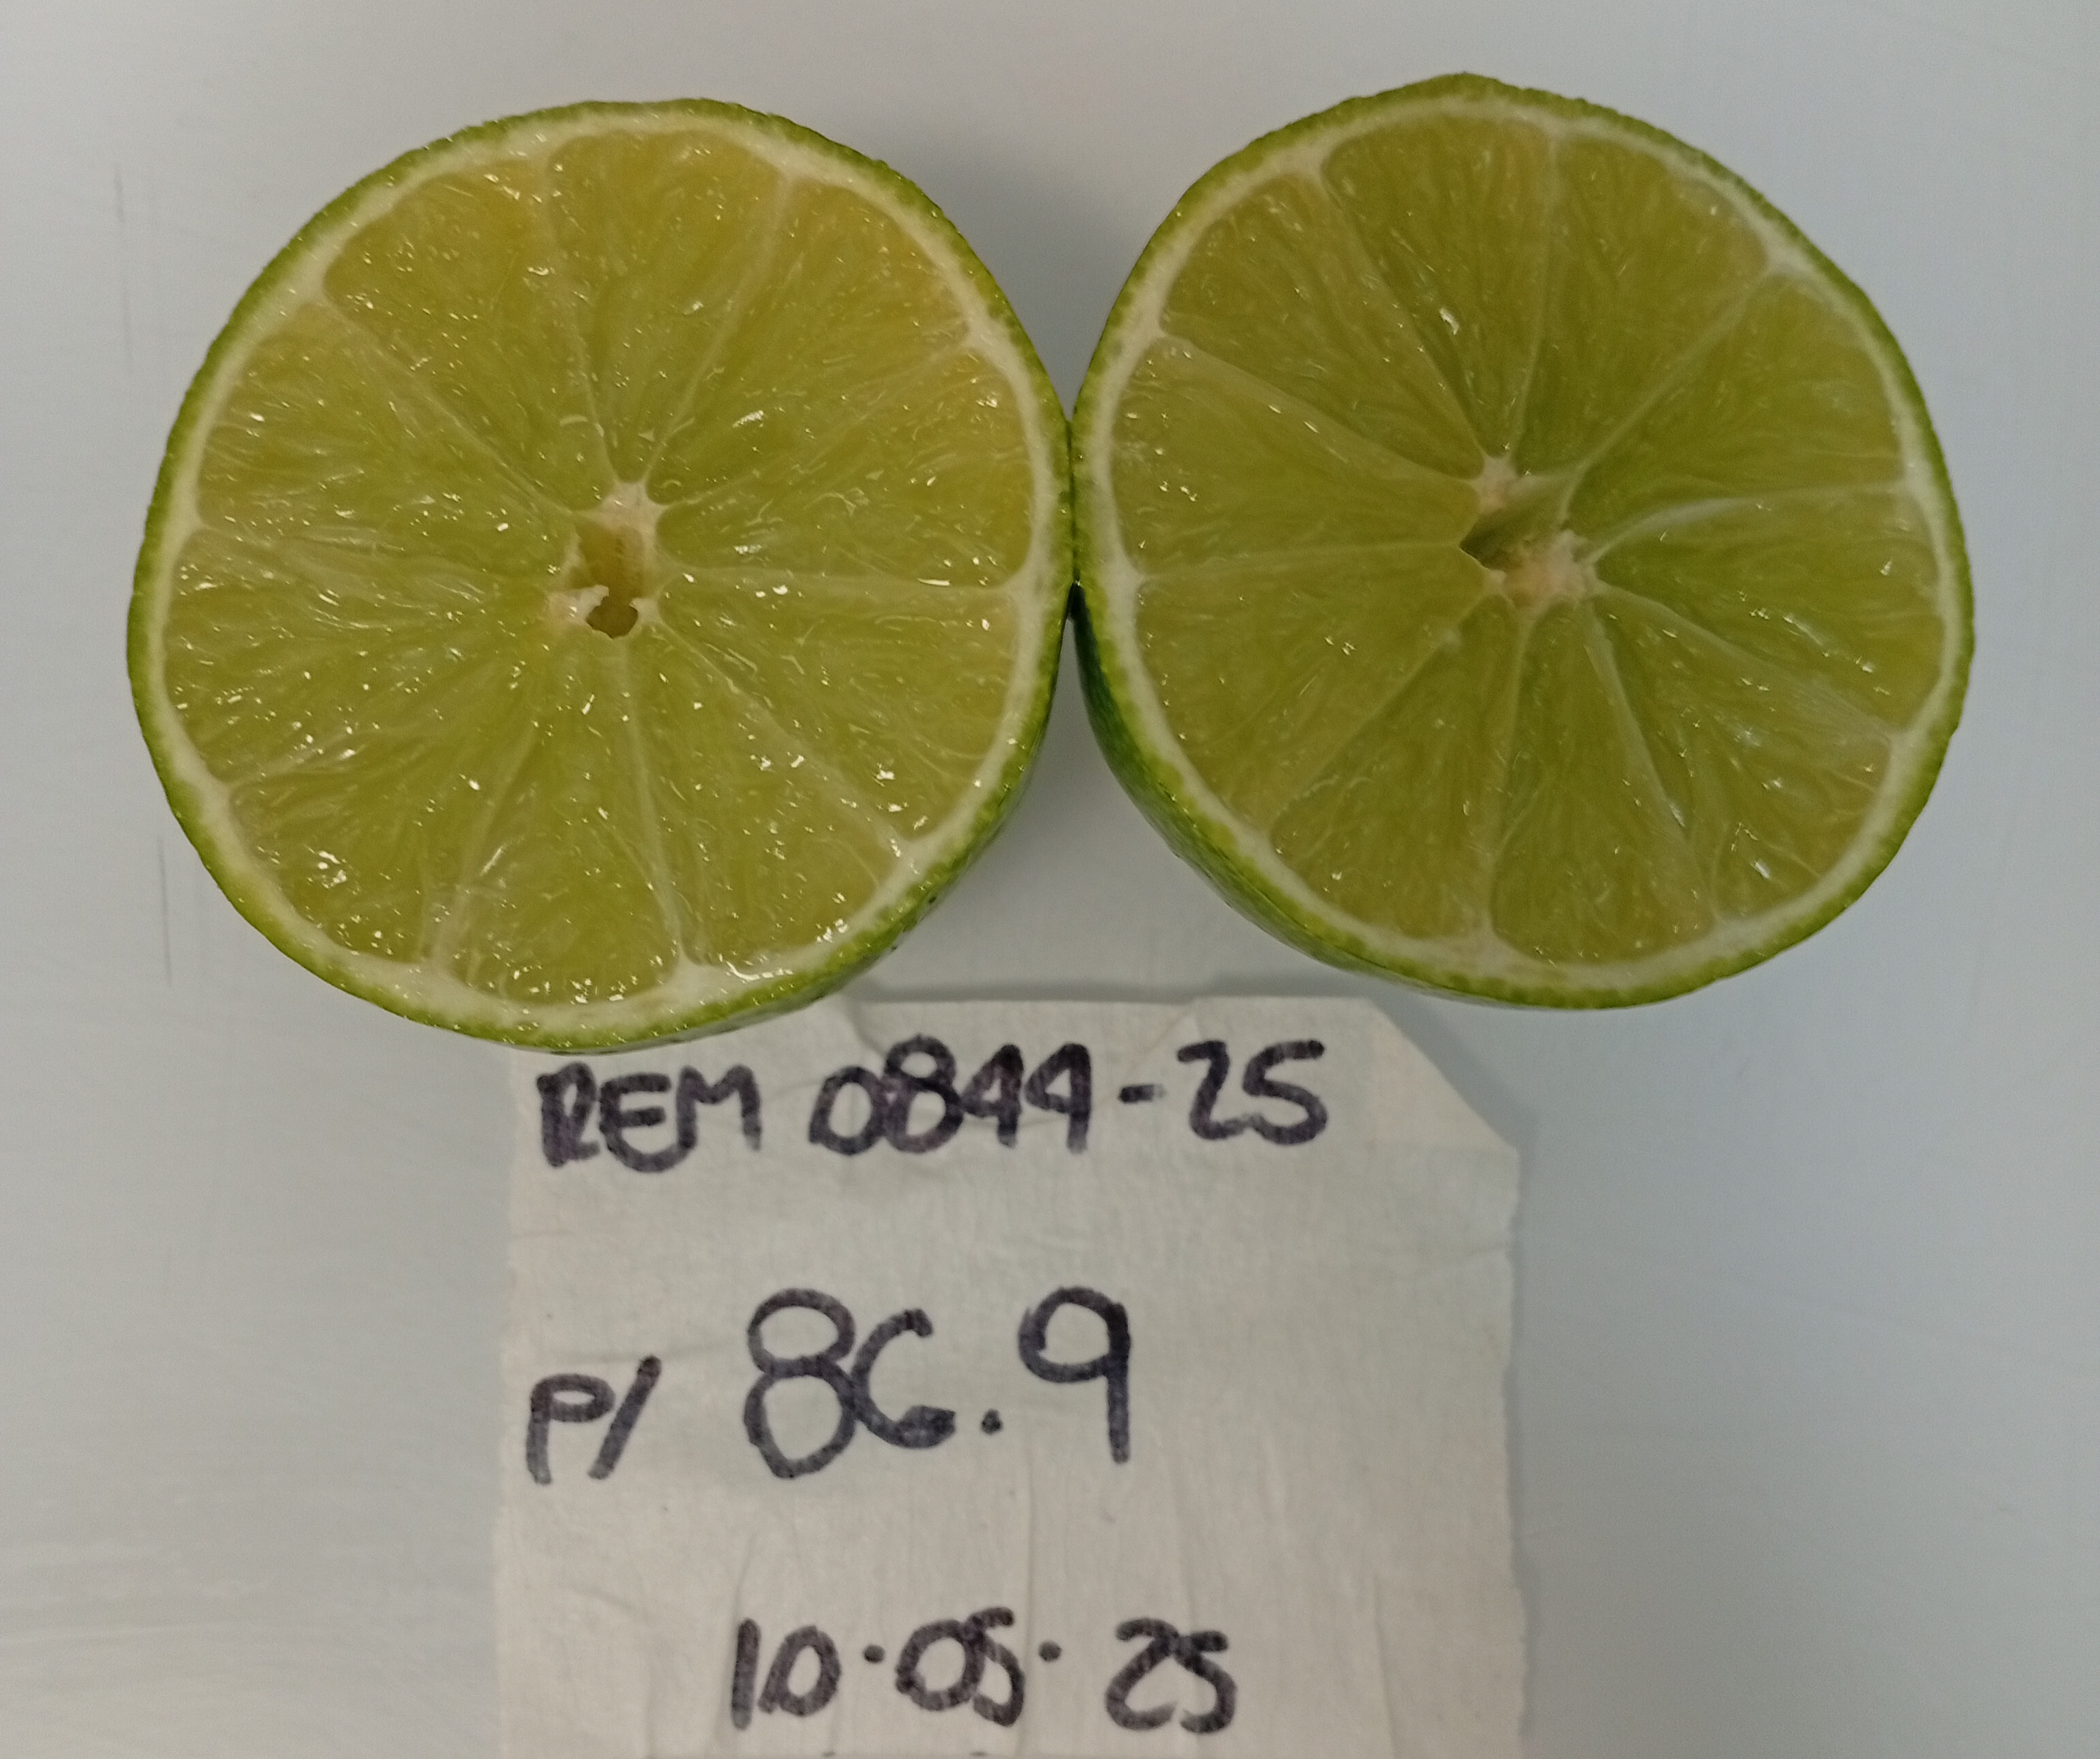 REM 0844-25
P/ 86.9
10.05.25